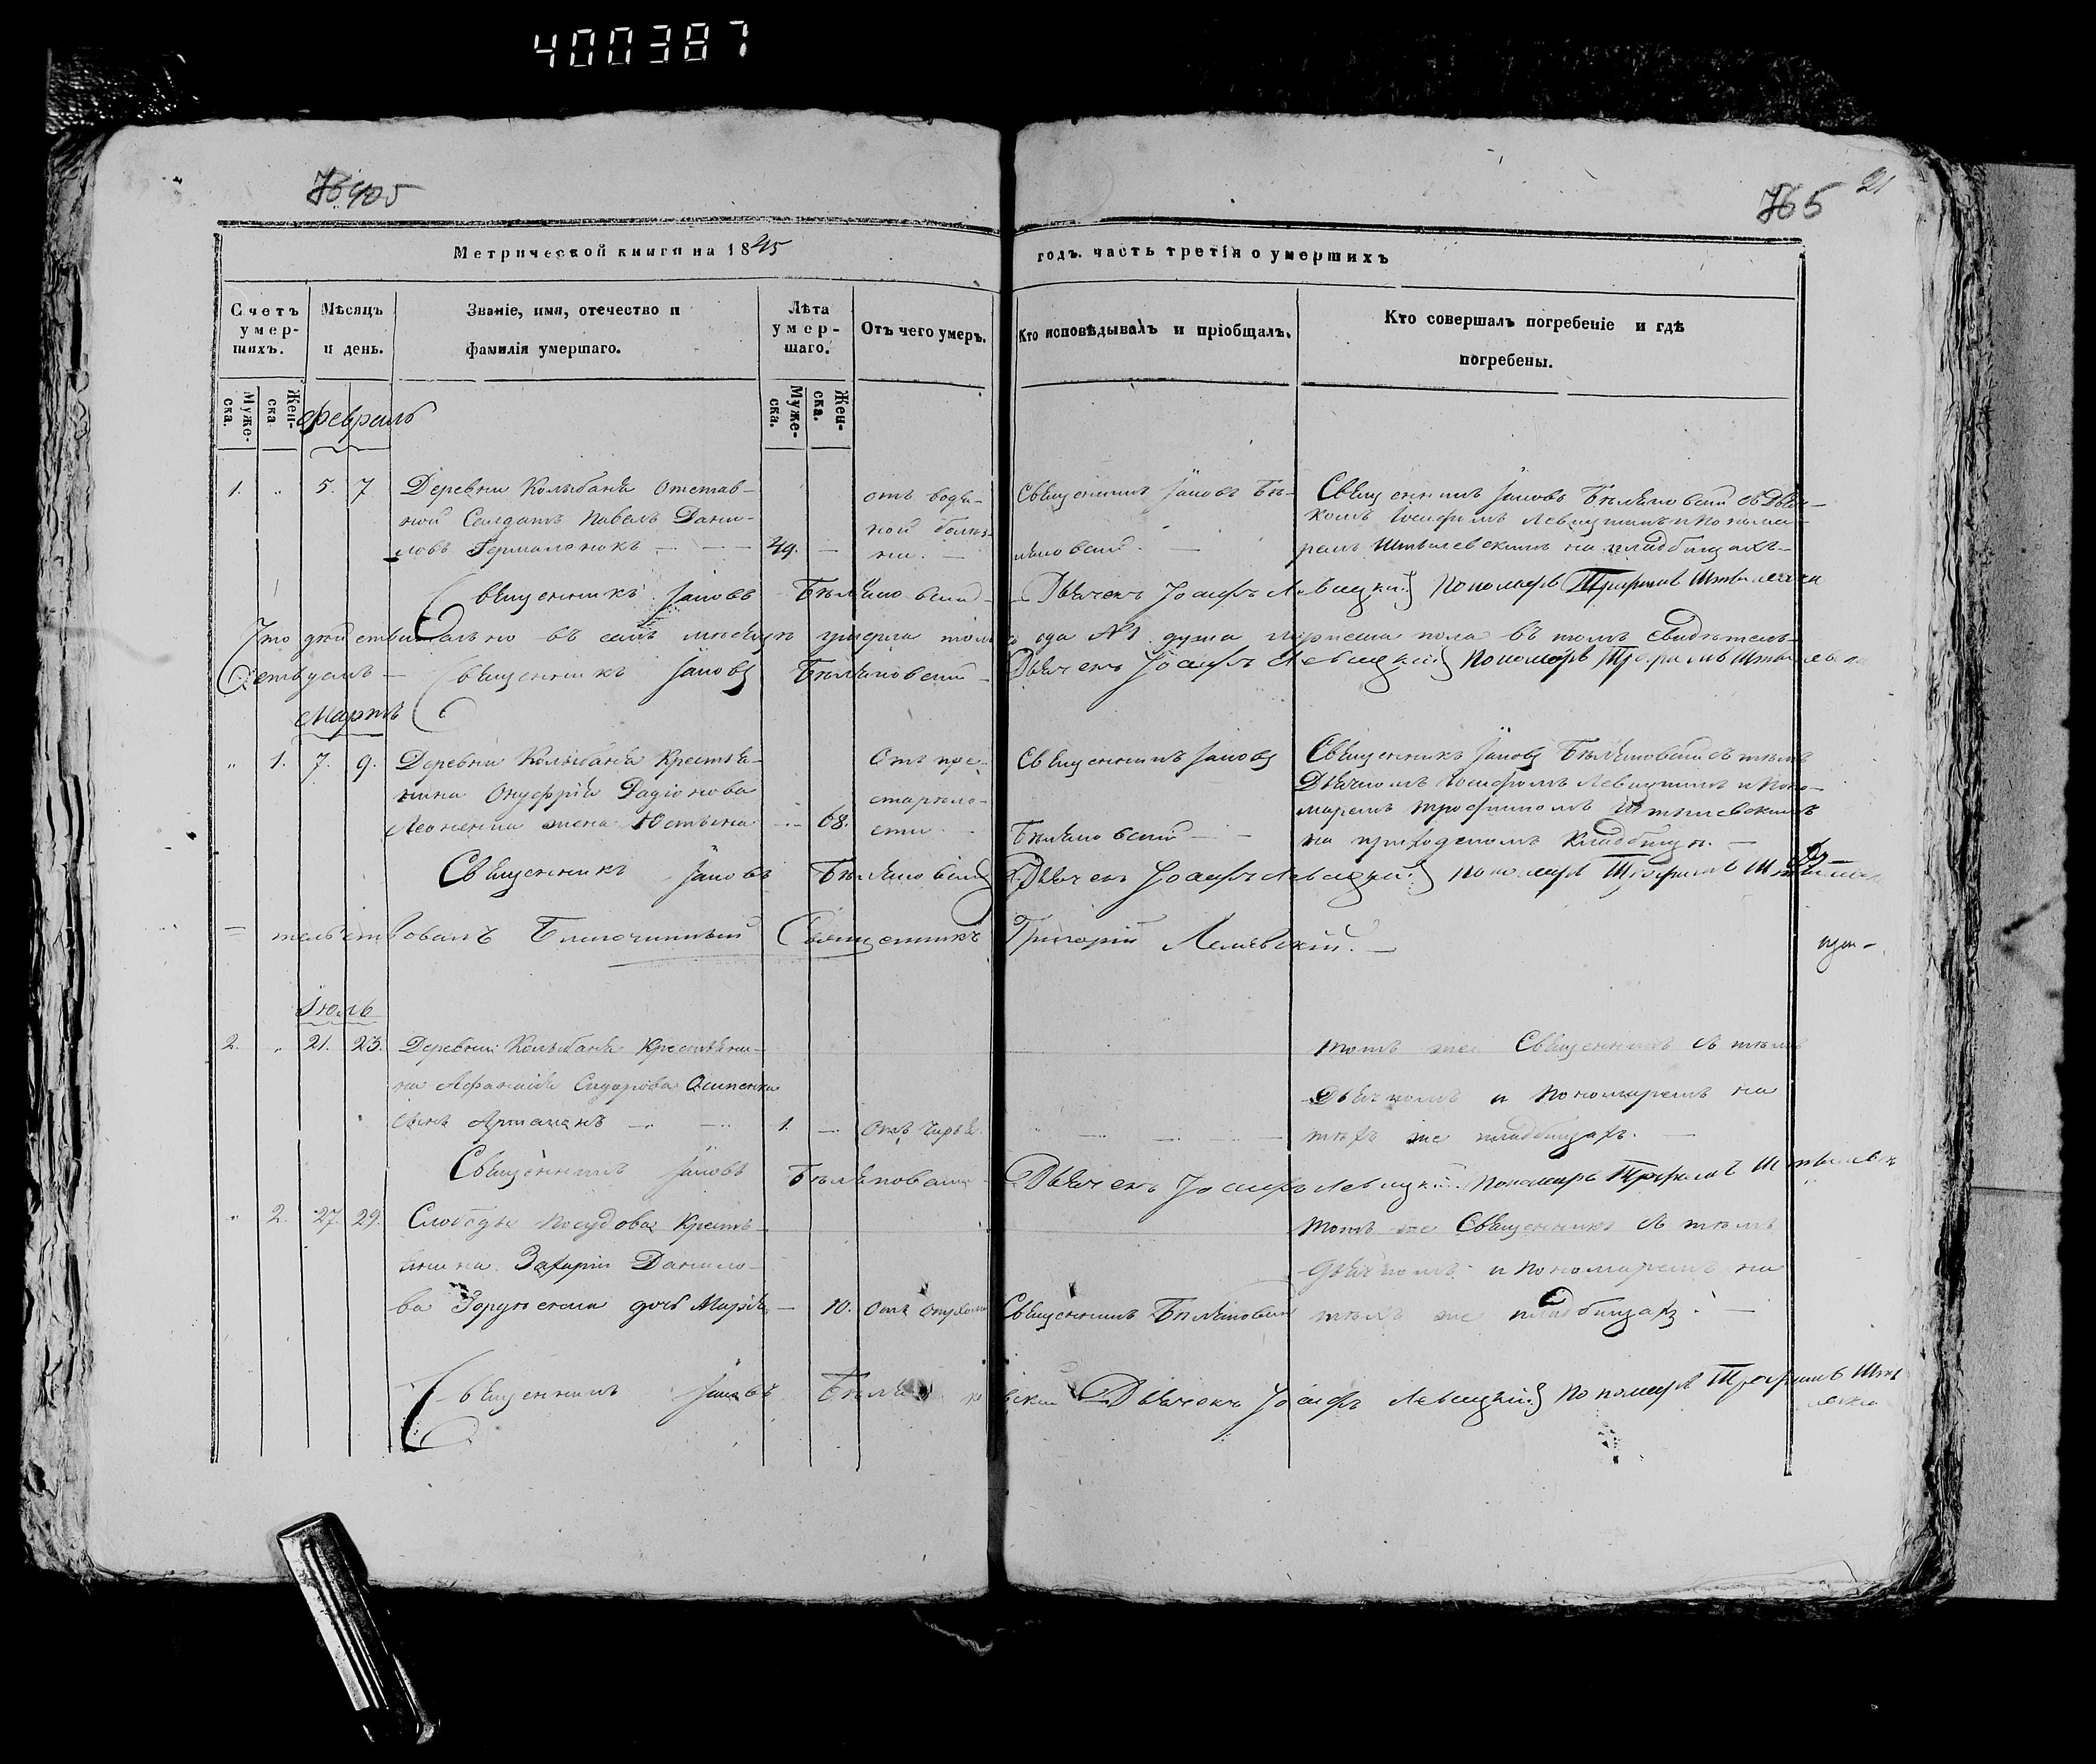 400387
405
765
21
Метрической книги на 1845
годъ. часть третія о умершихъ
Счетъ умер-шихъ.
Мѣсяцъ и день.
Званіе, имя, отечество и
фамилія умершаго.
Лѣта умер-шаго.
Отъ чего умеръ.
Кто исповѣдывалъ и пріобщалъ.
Кто совершалъ погребеніе и гдѣ
погребены.
Муже-ска.
Жен-ска
Муже-ска.
Жен-ска.
Февраль
1. " 5. 7. Деревни Колыбаня Отстав-
ной Салдатъ Павелъ Дани-
ловъ 49.
отъ водя-
ной болѣз-
ни.
Священникъ Іаковъ Бѣ-
ляновскій
Священникъ Іаковъ Бѣляновскій съ Дьяч-
комъ Іосифомъ Левицкимъ и понома-
ремъ на кладбищахъ
Священникъ Іаковъ Бѣляновскій Дьячекъ Іосифъ Левицкій Пономарь Трофимъ
Что дѣйствительно въ семъ мѣсяцѣ умерла только одна №1 душа мужеска пола въ томъ свидѣтель-
ствуемъ Священникъ Іаковъ Бѣляновскій Дьячекъ Іосифъ Левицкій Пономарь Трофимъ
Мартъ
" 1. 7. 9. Деревни Колыбаня Крестья-
нина Онуфрія Радіонова
жена Юстина 68.
Отъ пре-
старѣло-
сти
Священникъ Іаковъ
Бѣляновскій
Священникъ Іаковъ Бѣляновскій съ тѣмъ
Дьячкомъ Іосифомъ Левицкимъ и Поно-
маремъ Трофимомъ
на приходскомъ кладбищѣ.
Священникъ Іаковъ Бѣляновскій Дьячекъ Іосифъ Левицкій Пономарь Трофимъ
тельствовалъ Благочинный Священникъ Григорій
Іюль
2. " 21. 23. Деревни Колыбаня Крестьяни-
на Афанасія Сидорова Осипенка
сынъ 1. Отъ
тотъ же Священникъ съ тѣмъ
Дьячкомъ и Пономаремъ на
тѣхъ же кладбищахъ.
Священникъ Іаковъ Бѣляновскій Дьячекъ Іосифъ Левицкій Пономарь Трофимъ
" 2. 27. 29. Слободы Посудова Кресть-
янина Захарія Данило-
ва дочь Марія 10. Отъ Священникъ Бѣляновскій
тотъ же Священникъ съ тѣмъ
дьячкомъ и пономаремъ на
тѣхъ же кладбищахъ.
Священникъ Іаковъ Дьячекъ Іосифъ Левицкій Пономарь Трофимъ